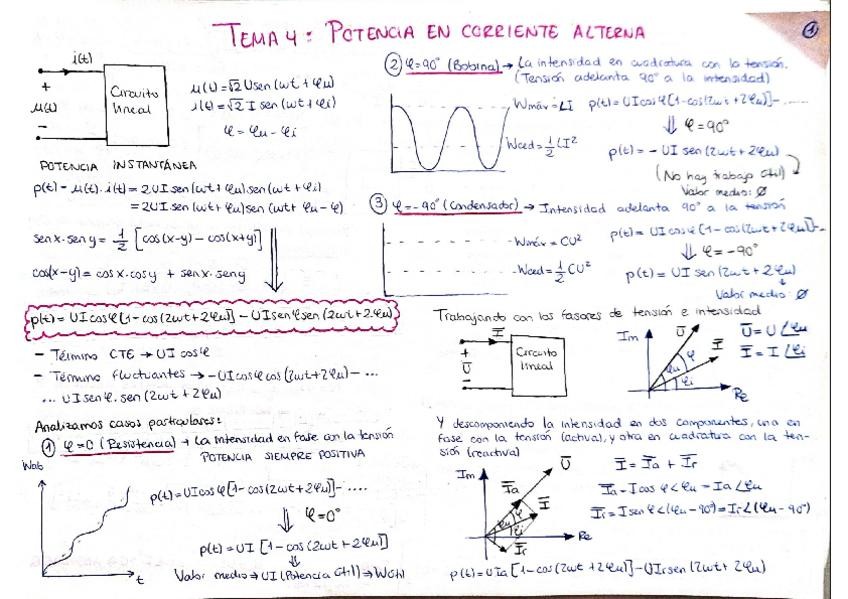 TEMA 4: POTENCIA EN CORRIENTE ALTERNA
1
i(t)
+
u(t)
-
Circuito
lineal
u(t) = √2 U sen (ωt + φu)
i(t) = √2 I sen (ωt + φi)
φ = φu - φi
POTENCIA INSTANTÁNEA
p(t) = u(t) · i(t) = 2UI sen(ωt + φu) sen(ωt + φi)
= 2UI sen(ωt + φu) sen(ωt + φu - φ)
senx·seny = 1/2 [cos(x-y) - cos(x+y)]
cos(x-y) = cosx·cosy + senx·seny
p(t) = UI cosφ [1 - cos(2ωt + 2φu)] - UI senφ sen(2ωt + 2φu)
- Término CTE → UI cosφ
- Término fluctuantes → -UI cosφ cos(2ωt + 2φu) - ...
... UI senφ. sen(2ωt + 2φu)
Analizamos casos particulares:
① φ=0 (Resistencia) → La intensidad en fase con la tensión
POTENCIA SIEMPRE POSITIVA
Wab
t
p(t) = UI cosφ [1 - cos(2ωt + 2φu)] - ....
⇓ φ=0°
p(t) = UI [1 - cos(2ωt + 2φu)]
⇓
Valor medio → UI (Potencia útil) → Wútil
② φ=90° (Bobina) → La intensidad en cuadratura con la tensión.
(Tensión adelanta 90° a la intensidad)
Wmáx = LI
Wced = 1/2 LI²
p(t) = UI cosφ [1 - cos(2ωt + 2φu)] - ......
⇓ φ=90°
p(t) = - UI sen(2ωt + 2φu)
(No hay trabajo útil)
Valor medio: Ø
③ φ=-90° (Condensador) → Intensidad adelanta 90° a la tensión
Wmáx = CU²
Wced = 1/2 CU²
p(t) = UI cosφ [1 - cos(2ωt + 2φu)] -
⇓ φ = -90°
p(t) = UI sen(2ωt + 2φu)
↓
Valor medio: Ø
Trabajando con los fasores de tensión e intensidad
I
+
U
-
Circuito
lineal
Im
U
I
φ
φu
φi
Re
U = U ∠φu
I = I ∠φi
Y descomponiendo la intensidad en dos componentes, una en
fase con la tensión (activa), y otra en cuadratura con la ten-
sión (reactiva)
Im
U
Ia
I
φ
φu
φi
Ir
Re
I = Ia + Ir
Ia = I cosφ ∠φu = Ia ∠φu
Ir = I senφ ∠(φu - 90°) = Ir ∠(φu - 90°)
p(t) = UIa [1 - cos(2ωt + 2φu)] - UIr sen(2ωt + 2φu)